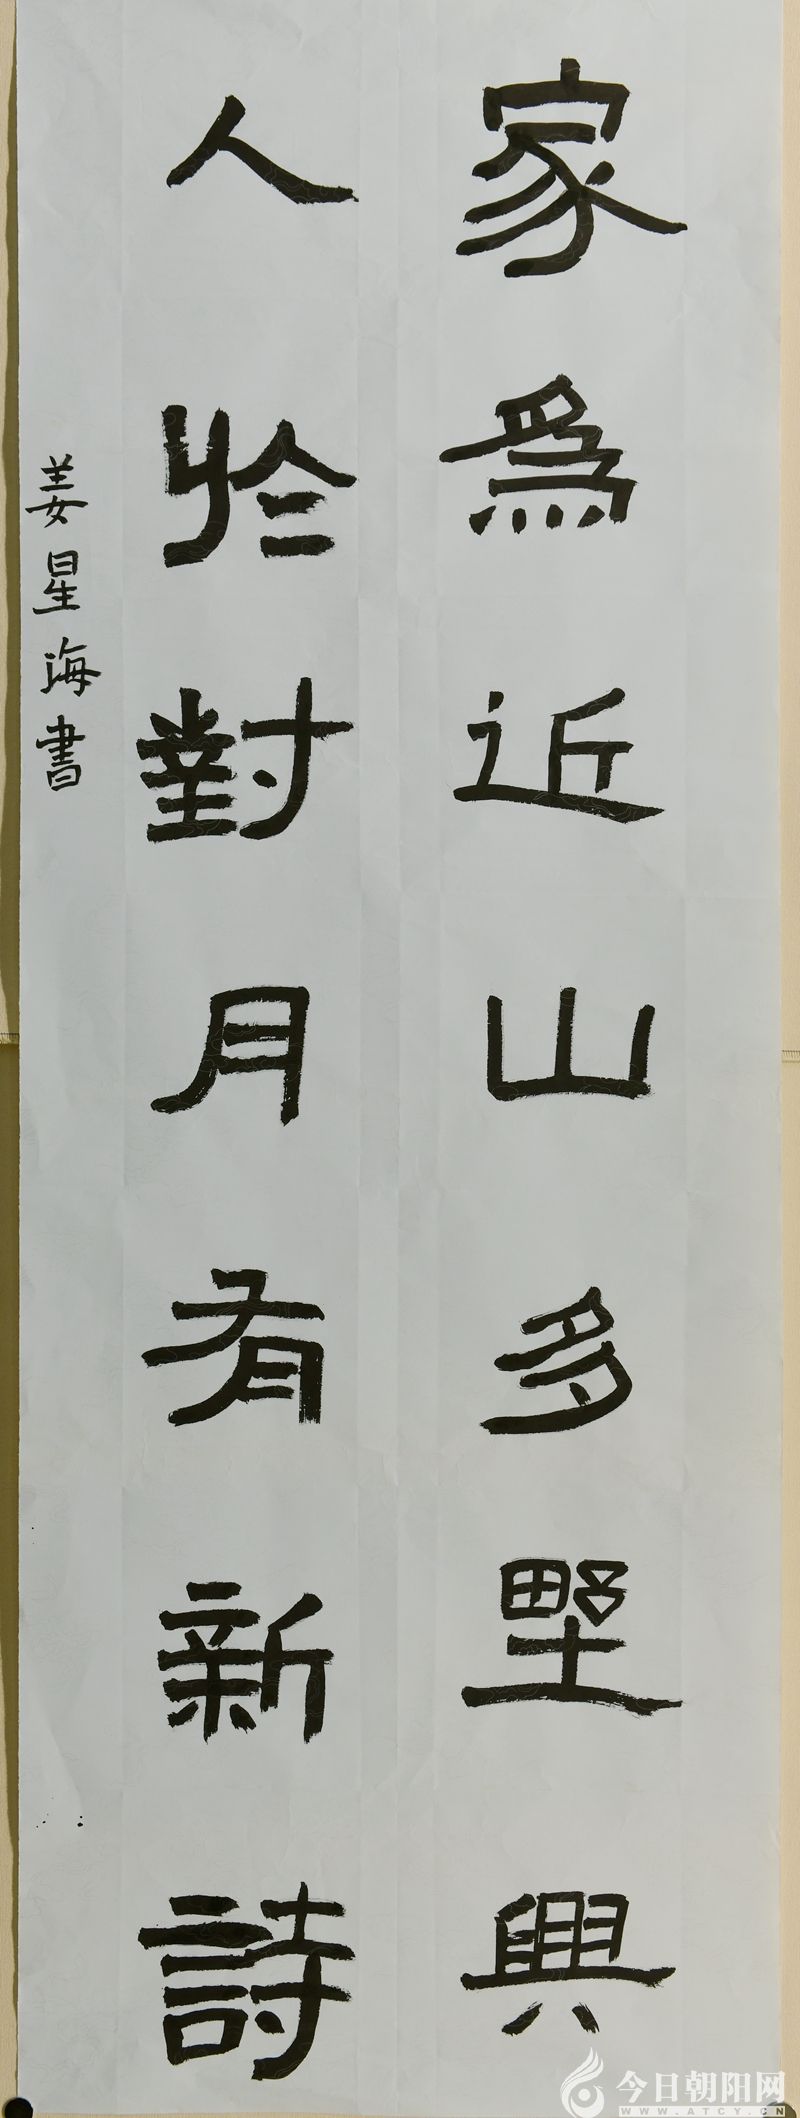 家爲近山多野興
人於對月有新詩
姜星海書
今日朝阳网
WWW.ATCY.CN